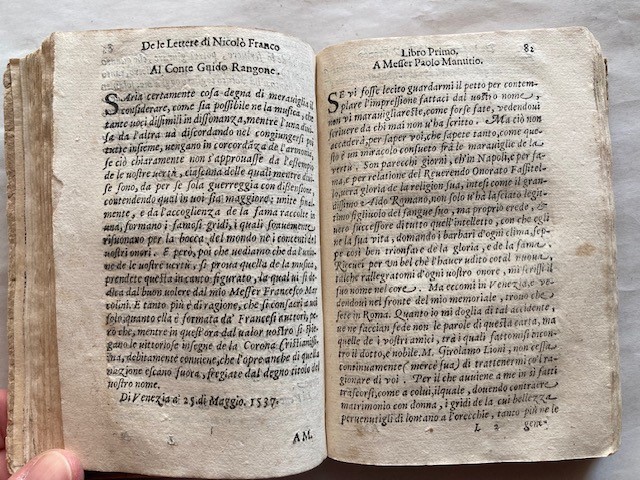 De le Lettere di Nicolò Franco
Al Conte Guido Rangone.
SAria certamente cosa degna di meraviglia il
considerare, come sia possibile ne la musica, che
tante uoci dissimili in dissonanza, mentre l'una divi-
sa da l'altra uà discordando nel congiungersi poi
tutte insieme, uengano in concordāza de l'armonia,
se ciò chiaramente non s'approuasse da l'essempio
de le uostre uertù, ciascuna delle quali mentre divi-
se sono, da per se sola guerreggia con distensione,
contendendo qual in uoi sia maggiore: unite final-
mente, e da l'accoglienza de la fama raccolte in
una, formano i famosi gridi, i quali soauemente
risuonano per la bocca del mondo nè i concenti del
uostri onori. E però, poi che uediamo che da l'unio-
ne de le uostre uertù, si proua quella de la musica,
prendete questa in canto figurato, la qual ui si de-
dica dal buon uolere dal mio Messer Francesco Mar
colini. E tanto più è di ragione, che si consacri a uoi
solo, quanto ella è formata da' Francesi auttori, pe-
rò che, mentre in quest'ora dal ualor uostro si spie-
gano le uittoriose insegne de la Corona Christianis-
sima, debitamente conuiene, che l'opre anche di quella
nazione escano fuora, fregiate dal degno titolo del
uostro nome.
Di Venezia a 25. di Maggio. 1537.
A M.
Libro Primo. 82
A Messer Paolo Manutio.
SE vi fosse lecito guardarmi il petto per contem-
plare l'impressione fattaci dal uostro nome,
non vi maravigliareste, come forse fate, vedendoui
scriuere da chi mai non u'ha scritto. Ma ciò non
accaderà, per saper voi, che sapete tanto, come que-
sto è un miracolo consueto frà le maraviglie de la
vertù. Son parecchi giorni, ch'in Napoli, e per fa-
ma, e per relatione del Reuerendo Onorato Fassitel-
lo, uera gloria de la religion sua, intesi come il gran-
dissimo e Aldo Romano, non solo u'ha lasciato legit-
timo figliuolo del sangue suo, ma proprio erede, e
vero successore di tutto quell'intelletto, con che egli
ne la sua vita, domando i barbari d'ogni clima, sep-
pe così ben trionfare de la gloria, e de la fama.
Riceuei per un bel chè l'hauer udito cotal nuoua,
ta'che rallegratomi d'ogni uostro onore, mi scrissi il
suo nome nel core. Ma eccomi in Venezia, e ve-
dendoui nel fronte del mio memoriale, trouo che
sete in Roma. Quanto io mi doglia di tal accidente,
ue ne faccian fede non le parole di questa carta, ma
quelle de i vostri amici, tra i quali fattomisi incon-
tro il dotto, e nobile. M. Girolamo Lioni, non cessa
continuamente (mercè sua) di trattenermi col ra-
gionare di voi. Per il che auuiene a me in sì fatti
trascorsi, come a colui, il quale, douendo contraere
matrimonio con donna, i gridi de la cui bellezza
peruenutigli di lontano a l'orecchie, tanto più ne le
L 2 gene-